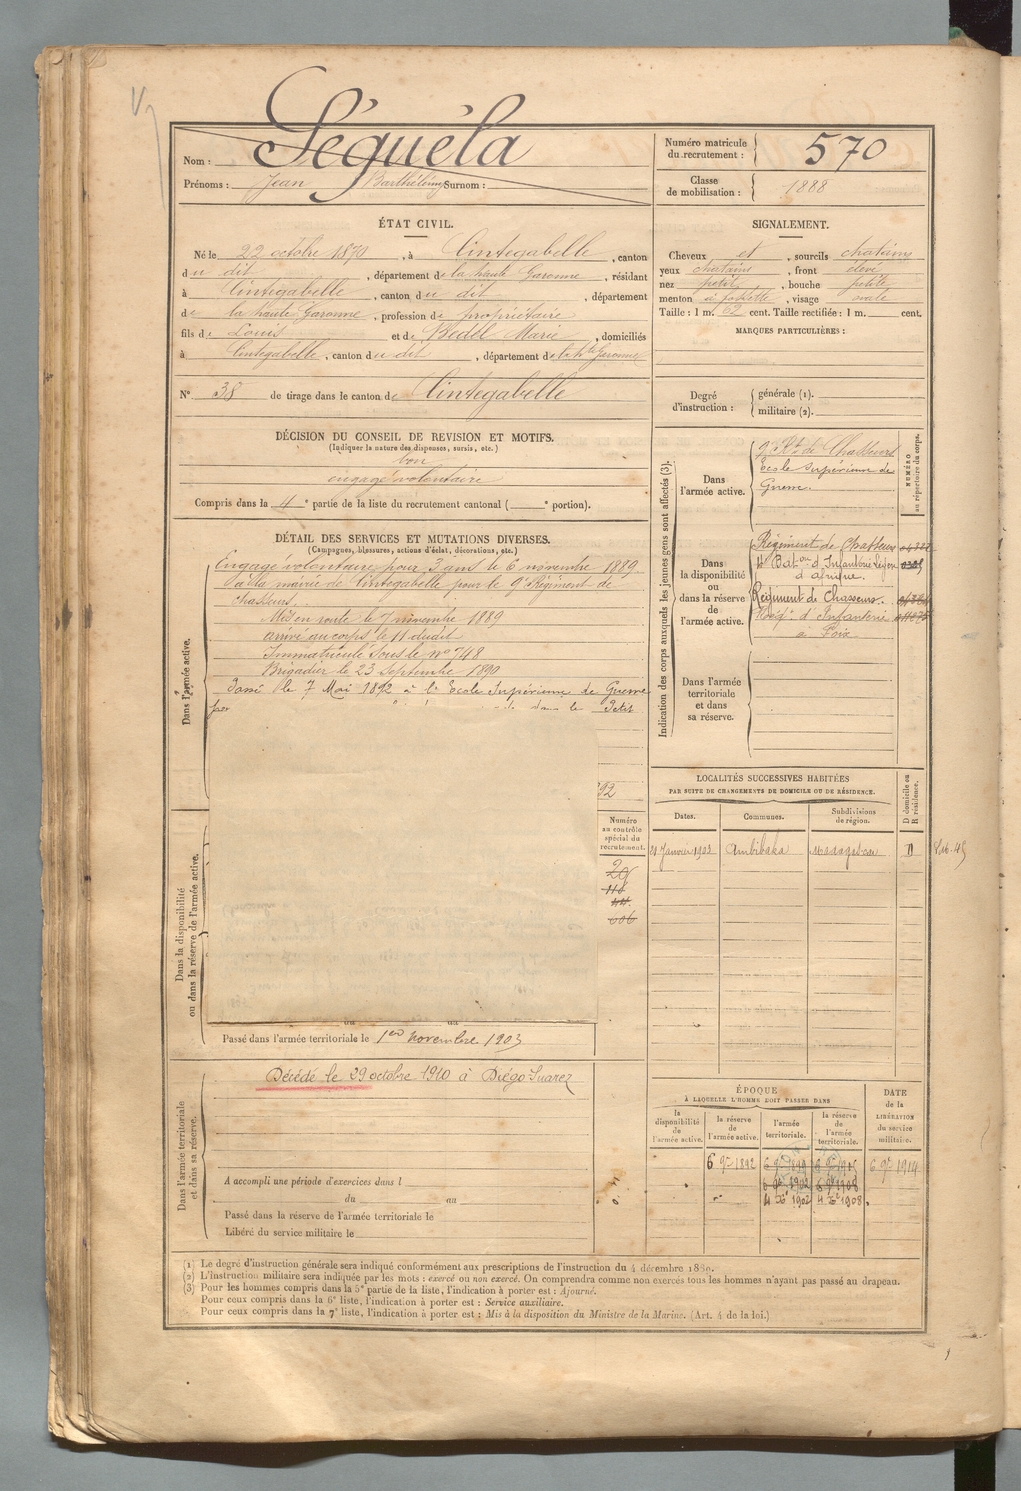 Nom : Séguéla
Prénoms : Jean Barthélémy Surnom :
Numéro matricule du recrutement : 570
Classe de mobilisation : 1888
ÉTAT CIVIL.
Né le 22 octobre 1870, à Cintegabelle, canton
du dit, département de la haute Garonne, résidant
à Cintegabelle, canton du dit, département
de la haute Garonne, profession de propriétaire
fils de Louis et de Bedel Marie, domiciliés
à Cintegabelle, canton du dit, département de la hte Garonne
N° 38 de tirage dans le canton de Cintegabelle
SIGNALEMENT.
Cheveux et, sourcils chatains
yeux chatains, front élevé
nez petit, bouche petite
menton à fossette, visage ovale
Taille : 1 m. 62 cent. Taille rectifiée : 1 m. cent.
MARQUES PARTICULIÈRES :
Degré d'instruction : générale (1).
militaire (2).
DÉCISION DU CONSEIL DE REVISION ET MOTIFS.
(Indiquer la nature des dispenses, sursis, etc.)
bon
engagé volontaire
Compris dans la 4e partie de la liste du recrutement cantonal ( e portion).
DÉTAIL DES SERVICES ET MUTATIONS DIVERSES.
(Campagnes, blessures, actions d'éclat, décorations, etc.)
Dans l'armée active.
Engagé volontaire pour 3 ans le 6 novembre 1889
à la mairie de Cintegabelle pour le 9e Régiment de
chasseurs.
Mis en route le 7 novembre 1889
arrivé au corps le 11 dudit
Immatriculé sous le no 748
Brigadier le 23 Septembre 1890
Passé le 7 Mai 1892 à l'Ecole Supérieure de Guerre
par
dans le Petit
92
Dans la disponibilité ou dans la réserve de l'armée active.
Numéro au contrôle spécial du recrutement.
29
110
606
Passé dans l'armée territoriale le 1er novembre 1903
Dans l'armée territoriale et dans sa réserve.
Décédé le 29 octobre 1910 à Diégo Suarez
A accompli une période d'exercices dans l
du au
Passé dans la réserve de l'armée territoriale le
Libéré du service militaire le
Indication des corps auxquels les jeunes gens sont affectés (3).
NUMÉRO au répertoire du corps.
Dans l'armée active.
9e Rt de Chasseurs
Ecole Supérieure de
Guerre.
Dans la disponibilité ou dans la réserve de l'armée active.
Régiment de Chasseurs
d'Afrique.
Régiment de Chasseurs.
d'Infanterie
à Foix
Dans l'armée territoriale et dans sa réserve.
LOCALITÉS SUCCESSIVES HABITÉES
PAR SUITE DE CHANGEMENTS DE DOMICILE OU DE RÉSIDENCE.
Dates. Communes. Subdivisions de région. D domicile ou R résidence.
21 Janvier 1903 Ambibaka Madagascar D
ÉPOQUE
À LAQUELLE L'HOMME DOIT PASSER DANS
la disponibilité de l'armée active. la réserve de l'armée active. l'armée territoriale. la réserve de l'armée territoriale.
DATE de la LIBÉRATION du service militaire.
6 9re 1892 6 9re 1899 6 9re 1905 6 9re 1914
4 Xe 1902 4 Xe 1908
(1) Le degré d'instruction générale sera indiqué conformément aux prescriptions de l'instruction du 4 décembre 1889.
(2) L'Instruction militaire sera indiquée par les mots : exercé ou non exercé. On comprendra comme non exercés tous les hommes n'ayant pas passé au drapeau.
(3) Pour les hommes compris dans la 5e partie de la liste, l'indication à porter est : Ajourné.
Pour ceux compris dans la 6e liste, l'indication à porter est : Service auxiliaire.
Pour ceux compris dans la 7e liste, l'indication à porter est : Mis à la disposition du Ministre de la Marine. (Art. 4 de la loi.)